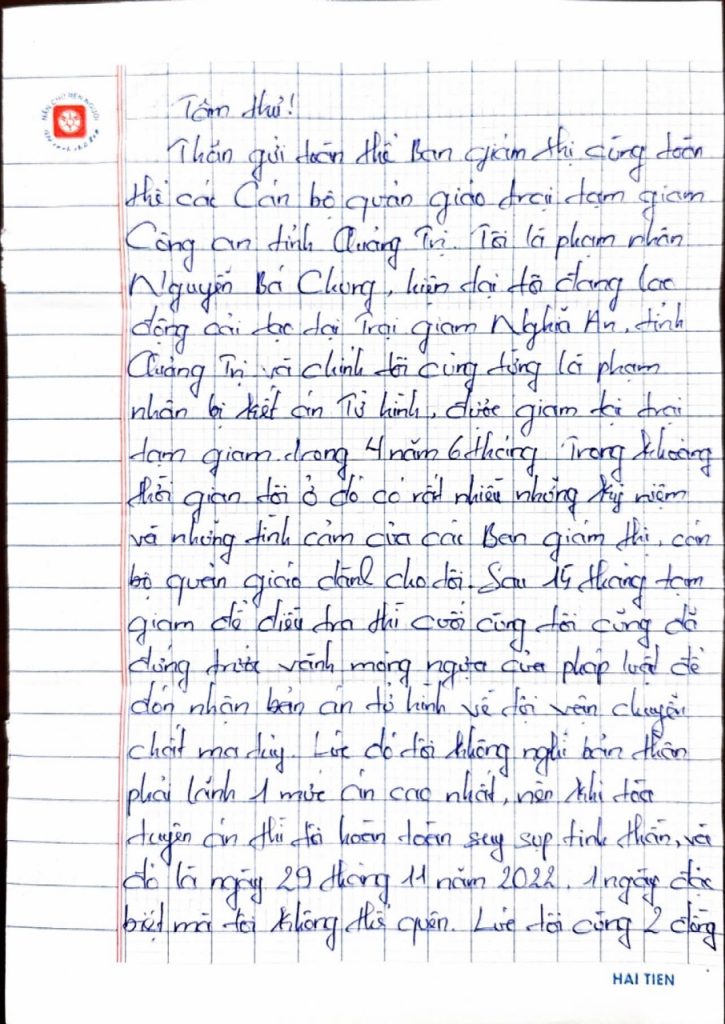 NÂN CHỮ NÊN NGƯỜI
Tâm thư!
Thân gửi toàn thể Ban giám thị cùng toàn
thể các Cán bộ quản giáo trại tạm giam
Công an tỉnh Quảng Trị. Tôi là phạm nhân
Nguyễn Bá Chung, hiện tại tôi đang lao
động cải tạo tại Trại giam Nghĩa An, tỉnh
Quảng Trị và chính tôi cũng từng là phạm
nhân bị kết án Tử hình, được giam tại trại
tạm giam trong 4 năm 6 tháng. Trong khoảng
thời gian tôi ở đó có rất nhiều những kỷ niệm
và những tình cảm của các Ban giám thị, cán
bộ quản giáo dành cho tôi. Sau 15 tháng tạm
giam để điều tra thì cuối cùng tôi cũng đã
đứng trước vành móng ngựa của pháp luật để
đón nhận bản án tử hình về tội vận chuyển
chất ma túy. Lúc đó tôi không nghĩ bản thân
phải lãnh 1 mức án cao nhất, nên khi tòa
tuyên án thì tôi hoàn toàn suy sụp tinh thần, và
đó là ngày 29 tháng 11 năm 2022. 1 ngày đặc
biệt mà tôi không thể quên. Lúc tôi cùng 2 đồng
HAI TIEN